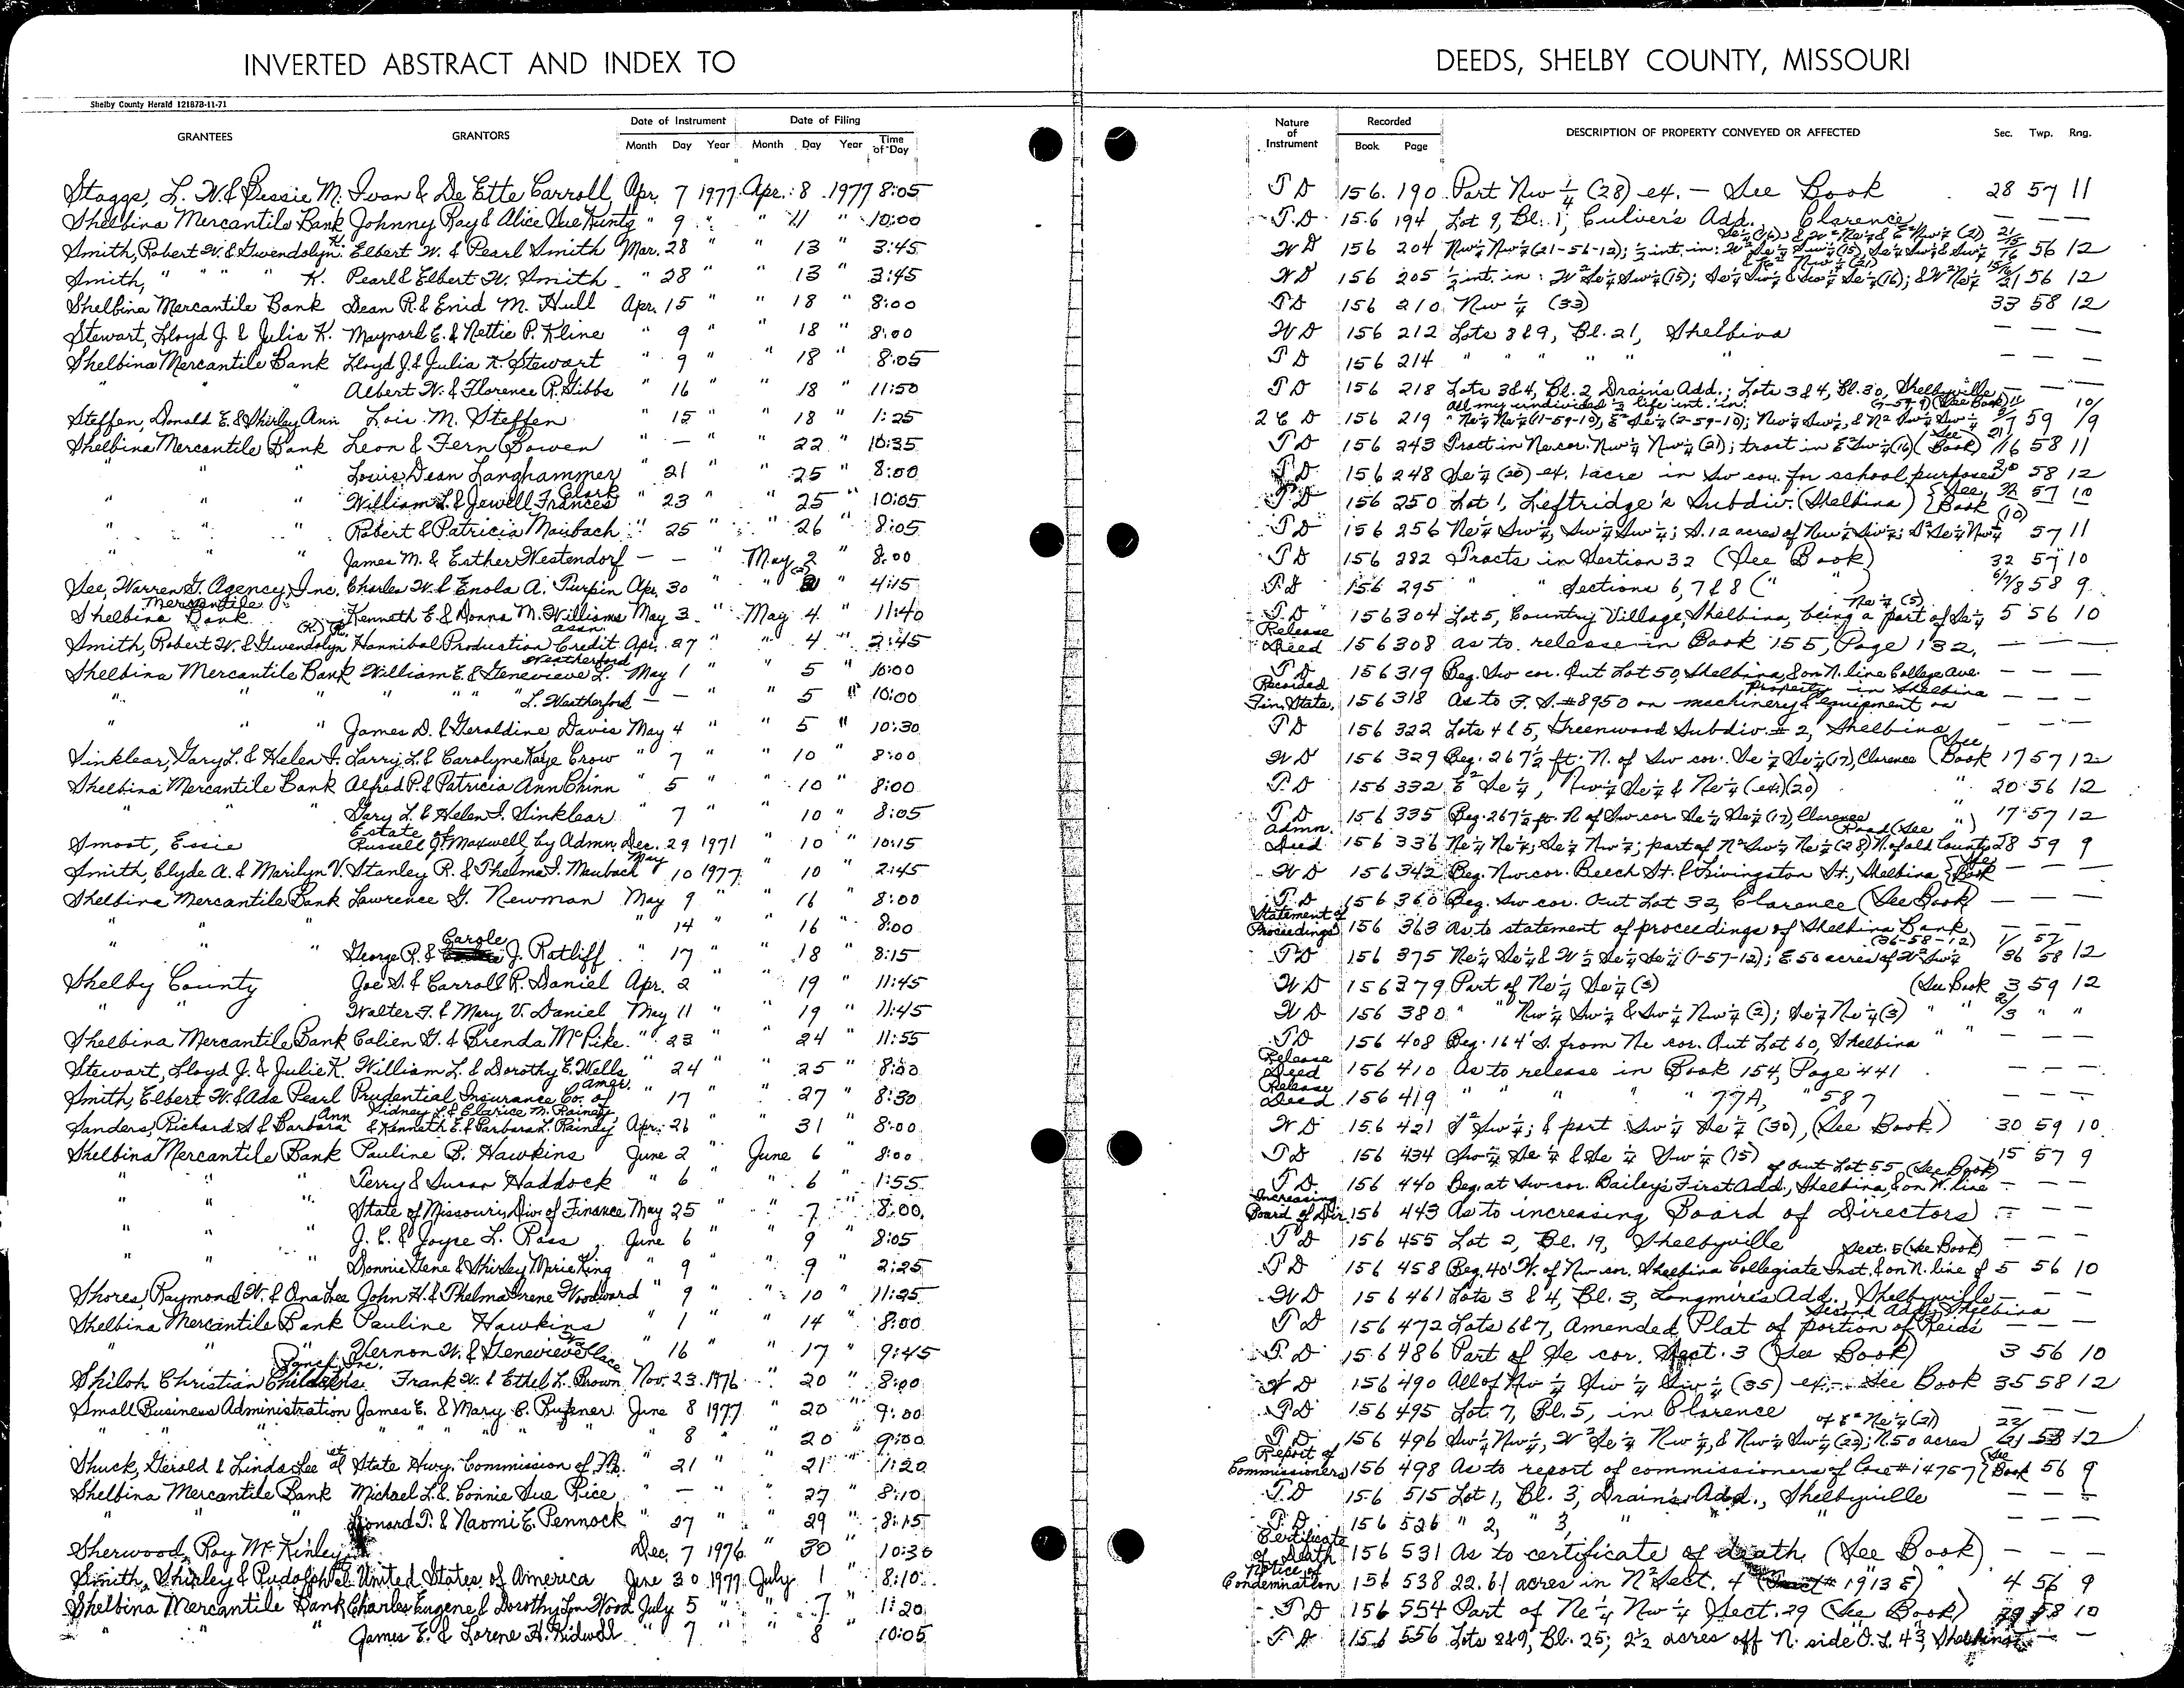 INVERTED ABSTRACT AND INDEX TO DEEDS, SHELBY COUNTY, MISSOURI
Shelby County Herald 121873-11-71
GRANTEES GRANTORS Date of Instrument Month Day Year Date of Filing Month Day Year Time of Day Nature of Instrument Recorded Book Page DESCRIPTION OF PROPERTY CONVEYED OR AFFECTED Sec. Twp. Rng.
Staggs, L. W. & Bessie M. Ivan & De Ette Carroll Apr. 7 1977 Apr. 8 1977 8:05 T D 156 190 Part Nw 1/4 (28) ex. — See Book 28 57 11
Shelbina Mercantile Bank Johnny Ray & Alice Sue " 9 " " 11 " 10:00 T.D 156 194 Lot 9, Bl. 1, Culver's Add. Clarence — — —
Smith, Robert W. & Gwendolyn K. Elbert W. & Pearl Smith Mar. 28 " " 13 " 3:45 W D 156 204 Nw 1/4 Nw 1/4 (21-56-12); 1/2 int. in: 56 12
Smith, " " " " K. Pearl & Elbert W. Smith " 28 " " 13 " 3:45 W D 156 205 1/2 int. in: W2 Se 1/4 Sw 1/4 (15); Se 1/4 Sw 1/4 & Sw 1/4 Se 1/4 (16); & W2 Ne 1/4 15/16/21 56 12
Shelbina Mercantile Bank Dean R. & Enid M. Hull Apr. 15 " " 18 " 8:00 T D 156 210 Nw 1/4 (33) 33 58 12
Stewart, Lloyd J. & Julia K. Maynard E. & Nettie P. Kline " 9 " " 18 " 8:00 W D 156 212 Lots 8 & 9, Bl. 21, Shelbina — — —
Shelbina Mercantile Bank Lloyd J. & Julia K. Stewart " 9 " " 18 " 8:05 T D 156 214 " " " " " — — —
" " " Albert W. & Florence R. Gibbs " 16 " " 18 " 11:50 T D 156 218 Lots 3 & 4, Bl. 2 Drain's Add.; Lots 3 & 4, Bl. 30, Shelbyville — — —
Steffen, Donald E. & Shirley Ann Lois M. Steffen " 15 " " 18 " 1:25 2 C D 156 219 All my undivided 1/3 life int. in: Ne 1/4 Ne 1/4 (1-59-10), E2 Se 1/4 (2-59-10); Nw 1/4 Sw 1/4, & N2 Sw 1/4 Sw 1/4 (7-59-9) (See Book) 59 10/9
Shelbina Mercantile Bank Leon & Fern Bowen " — " " 22 " 10:35 T D 156 243 Tract in Ne cor. Nw 1/4 Nw 1/4 (21); tract in E2 Sw 1/4 (16) (See Book) 21/16 58 11
" " " Louis Dean Langhammer " 21 " " 25 " 8:00 T D 156 248 Se 1/4 (20) ex. 1 acre in Sw cor. for school purposes 20 58 12
" " " William L. & Jewell Frances Clark " 23 " " 25 " 10:05 T D 156 250 Lot 1, Leftridge's Subdiv. (Shelbina) (See Book 32 57 10
" " " Robert & Patricia Maubach " 25 " " 26 " 8:05 T D 156 256 Ne 1/4 Sw 1/4, Sw 1/4 Sw 1/4; S. 12 acres of Nw 1/4 Sw 1/4; S2 Se 1/4 Nw 1/4 (10) 57 11
" " " James M. & Esther Westendorf — — " May 2 " 8:00 T D 156 282 Tracts in Section 32 (See Book) 32 57 10
See, Warren G. Agency, Inc. Charles W. & Enola A. Turpin Apr. 30 " " " 4:15 T.D 156 295 " " Sections 6, 7 & 8 (" ") 6/7/8 58 9
Shelbina Mercantile Bank Kenneth E. & Donna M. Williams May 3 " May 4 " 11:40 T.D 156 304 Lot 5, Country Village, Shelbina, being a part of Se 1/4 Ne 1/4 (5) 5 56 10
Smith, Robert W. & Gwendolyn (K) Hannibal Production Credit Assn. Apr. 27 " " 4 " 2:45 Release Deed 156 308 as to release in Book 155, Page 132, — — —
Shelbina Mercantile Bank William E. & Genevieve L. Weatherford May 1 " " 5 " 10:00 T D 156 319 Beg. Sw cor. Out Lot 50, Shelbina, & on N. line College Ave. — — —
" " " " " " L. Weatherford — — " " 5 " 10:00 Recorded Fin. State. 156 318 As to F. S. #8950 on machinery & equipment on Property in Shelbina — — —
" " " James D. & Geraldine Davis May 4 " " 5 " 10:30 T D 156 322 Lots 4 & 5, Greenwood Subdiv. # 2, Shelbina — — —
Sinklear, Gary L. & Helen I. Larry L. & Carolyne Kaye Crow " 7 " " 10 " 8:00 W D 156 329 Beg. 267 1/2 ft. N. of Sw cor. Se 1/4 Se 1/4 (17), Clarence (See Book 17 57 12
Shelbina Mercantile Bank Alfred P. & Patricia Ann Chinn " 5 " " 10 " 8:00 T.D 156 332 E2 Se 1/4, Nw 1/4 Se 1/4 & Ne 1/4 (ex) (20) " 20 56 12
" " " Gary L. & Helen I. Sinklear " 7 " " 10 " 8:05 T D 156 335 Beg. 267 1/2 ft. N of Sw cor Se 1/4 Se 1/4 (17), Clarence " 17 57 12
Smost, Essie Estate of Russell J. Maxwell, by Admn. Dec. 29 1971 " 10 " 10:15 Admn. Deed 156 336 Ne 1/4 Ne 1/4; Se 1/4 Nw 1/4; part of N2 Sw 1/4 Ne 1/4 (28) N. of old County Road (See ") 28 59 9
Smith, Clyde A. & Marilyn V. Stanley R. & Thelma I. Maubach May 10 1977 " 10 " 2:45 W D 156 342 Beg. Nw cor. Beech St. & Livingston St., Shelbina (See Book — — —
Shelbina Mercantile Bank Lawrence G. Newman May 9 " " 16 " 8:00 T D 156 360 Beg. Sw cor. Out Lot 32, Clarence (See Book) — — —
14 " " 16 " 8:00 Statement of Proceedings 156 363 As to statement of proceedings of Shelbina Bank — — —
" " " George R. & Carole J. Ratliff " 17 " " 18 " 8:15 T D 156 375 Ne 1/4 Se 1/4 & W 1/2 Se 1/4 Se 1/4 (1-57-12); E. 50 acres of W2 Sw 1/4 (36-58-12) 1/36 57/58 12
Shelby County Joe S. & Carroll R. Daniel Apr. 2 " " 19 " 11:45 W D 156 379 Part of Ne 1/4 Se 1/4 (3) (See Book 3 59 12
" " Walter F. & Mary V. Daniel May 11 " " 19 " 11:45 W D 156 380 " " Nw 1/4 Sw 1/4 & Sw 1/4 Nw 1/4 (2); Se 1/4 Ne 1/4 (3) " " 2/3 " "
Shelbina Mercantile Bank Calien G. & Brenda McPike " 23 " " 24 " 11:55 T D 156 408 Beg. 164' S. from Ne cor. Out Lot 60, Shelbina " " — —
Stewart, Lloyd J. & Julie K. William L. & Dorothy E. Wells " 24 " " 25 " 8:00 Release Deed 156 410 As to release in Book 154, Page 441 — — —
Smith, Elbert W. & Ada Pearl Prudential Insurance Co. of Amer. " 17 " " 27 " 8:30 Release Deed 156 419 " " " " 77A, " 587 — — —
Sanders, Richard S & Barbara Ann Sidney L. & Clarice M. Rainey & Kenneth E. & Barbara L. Rainey Apr. 26 " " 31 " 8:00 W D 156 421 S2 Sw 1/4; & part Sw 1/4 Se 1/4 (30), (See Book) 30 59 10
Shelbina Mercantile Bank Pauline B. Hawkins June 2 " June 6 " 8:00 T D 156 434 Sw 1/4 Se 1/4 & Se 1/4 Sw 1/4 (15) 15 57 9
" " " Terry & Susan Haddock " 6 " " 6 " 1:55 T D 156 440 Beg. at Sw cor. Bailey's First Add., Shelbina, & on N. line of Out Lot 55 (See Book) — — —
" " " State of Missouri, Div. of Finance May 25 " " 7 " 8:00 Increasing Board of Dir. 156 443 As to increasing Board of Directors — — —
" " " J. C. & Joyce L. Ross June 6 " " 9 " 8:05 T D 156 455 Lot 2, Bl. 19, Shelbyville — — —
" " " Donnie Gene & Shirley Marie King " 9 " " 9 " 2:25 T D 156 458 Beg. 40' W. of Nw cor. Shelbina Collegiate Inst. & on N. line of Sect. 5 (See Book) 5 56 10
Shores, Raymond W. & Ona Lee John H. & Thelma Irene Woodward " 9 " " 10 " 11:25 W D 156 461 Lots 3 & 4, Bl. 3, Longmire's Add., Shelbyville — — —
Shelbina Mercantile Bank Pauline Hawkins " 1 " " 14 " 8:00 T D 156 472 Lots 6 & 7, Amended Plat of portion of Reid's Second Add., Shelbina
" " " Vernon W. & Genevieve Wallace " 16 " " 17 " 9:45 T. D 156 486 Part of Se cor. Sect. 3 (See Book) 3 56 10
Shiloh Christian Children's Ranch, Inc. Frank W. & Ethel L. Brown Nov. 23 1976 " 20 " 8:00 W D 156 490 All of Nw 1/4 Sw 1/4 Sw 1/4 (35) ex. — See Book 35 58 12
Small Business Administration James E. & Mary C. June 8 1977 " 20 " 9:00 T D 156 495 Lot 7, Bl. 5, in Clarence — — —
" " " " " " " " 8 " " 20 " 9:00 T D 156 496 Sw 1/4 Nw 1/4, W2 Se 1/4 Nw 1/4, & Nw 1/4 Sw 1/4 (22); N. 50 acres of E2 Ne 1/4 (21) 22/21 58 12
Shuck, Gerold & Linda Lee et al State Hwy. Commission of Mo. " 21 " " 21 " 1:20 Report of Commissioners 156 498 As to report of commissioners of Case #14757 (See Book 56 9
Shelbina Mercantile Bank Michael L. & Connie Sue Rice " — " " 27 " 8:10 T.D 156 515 Lot 1, Bl. 3, Drain's Add., Shelbyville — — —
" " " Leonard T. & Naomi E. Pennock " 27 " " 29 " 8:15 T.D. 156 526 " 2, " 3, " " " — — —
Sherwood, Roy McKinley Dec. 7 1976 " 30 " 10:30 Certificate of Death 156 531 As to certificate of death (See Book) — — —
Smith, Shirley & Rudolph et al United States of America June 30 1977 July 1 " 8:10 Notice of Condemnation 156 538 22.61 acres in N2 Sect. 4 (Tract # 1913 E) 4 56 9
Shelbina Mercantile Bank Charles Eugene & Dorothy Lou Wood July 5 " " 7 " 1:20 T D 156 554 Part of Ne 1/4 Nw 1/4 Sect. 29 (See Book) 29 58 10
" " " James E. & Lorene H. Kidwell " 7 " " 8 " 10:05 T D 156 556 Lots 8 & 9, Bl. 25; 2 1/2 acres off N. side O. L. 43, Shelbina — —